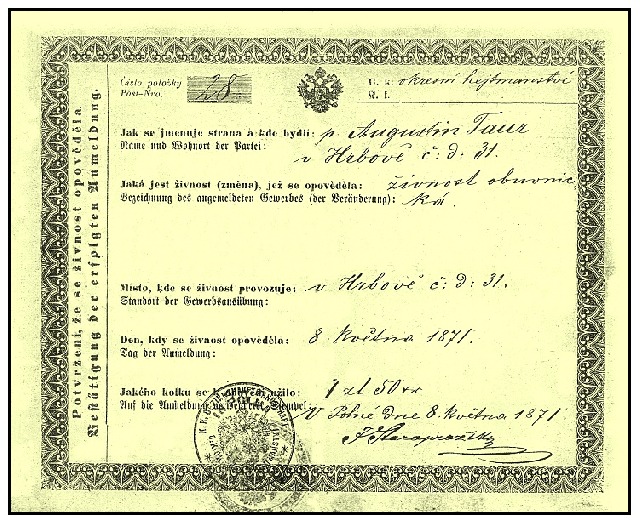 Potvrzení, že se živnost opověděla.
Bestätigung der erfolgten Anmeldung.
Číslo položky
Post-Nro.
28
okresní hejtmanství
Jak se jmenuje strana a kde bydlí: p. Augustin Taur
Name und Wohnort der Partei: v Hrbově č: d: 31.
Jaká jest živnost (změna), jež se opověděla: živnost obuvnic
Bezeichnung des angemeldeten Gewerbes (der Veränderung): ká
Místo, kde se živnost provozuje: v Hrbově č: d: 31.
Standort der Gewerbsausübung:
Den, kdy se živnost opověděla: 8 Května 1871.
Tag der Anmeldung:
Jakého kolku se k užilo: 1 zl 50 kr
Auf die Anmeldung Stempel:
V Polné dne 8. května 1871